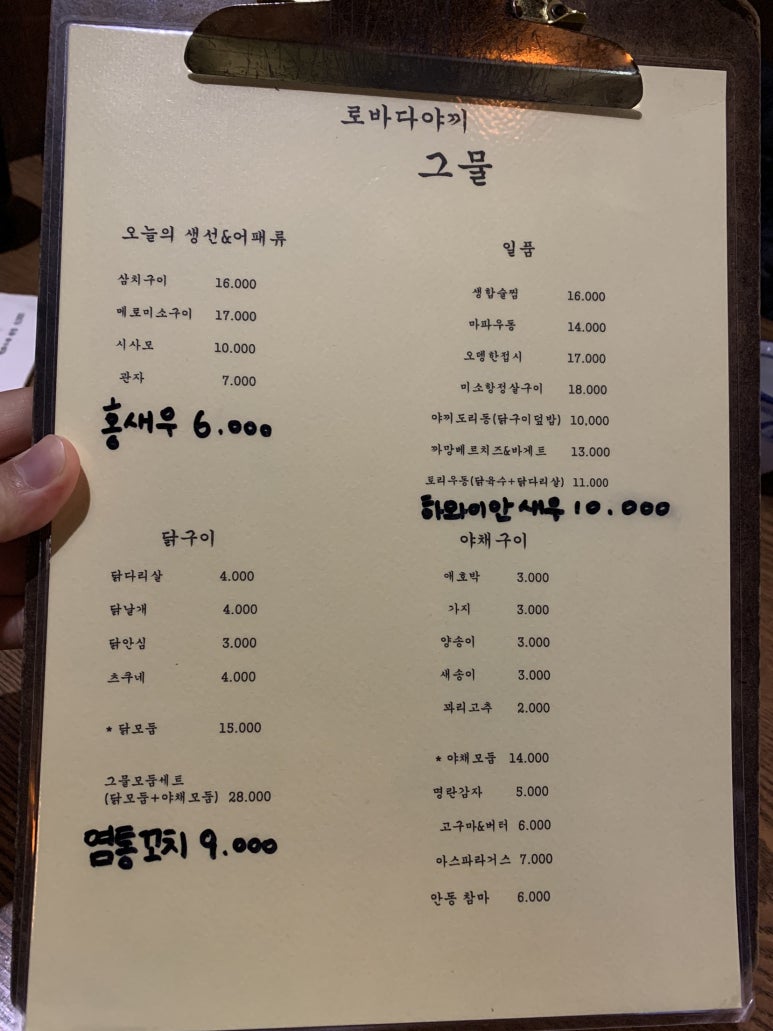 로바다야끼
그물
오늘의 생선&어패류
삼치구이 16.000
메로미소구이 17.000
시사모 10.000
관자 7.000
홍새우 6.000
일품
생합술찜 16.000
마파우동 14.000
오뎅한접시 17.000
미소항정살구이 18.000
야끼도리동(닭구이덮밥) 10.000
까망베르치즈&바게트 13.000
토리우동(닭육수+닭다리살) 11.000
하와이안새우 10.000
닭구이
닭다리살 4.000
닭날개 4.000
닭안심 3.000
츠쿠네 4.000
* 닭모둠 15.000
그물모둠세트
(닭모둠+야채모둠) 28.000
염통꼬치 9.000
야채구이
애호박 3.000
가지 3.000
양송이 3.000
새송이 3.000
꽈리고추 2.000
* 야채모둠 14.000
명란감자 5.000
고구마&버터 6.000
아스파라거스 7.000
안동 참마 6.000